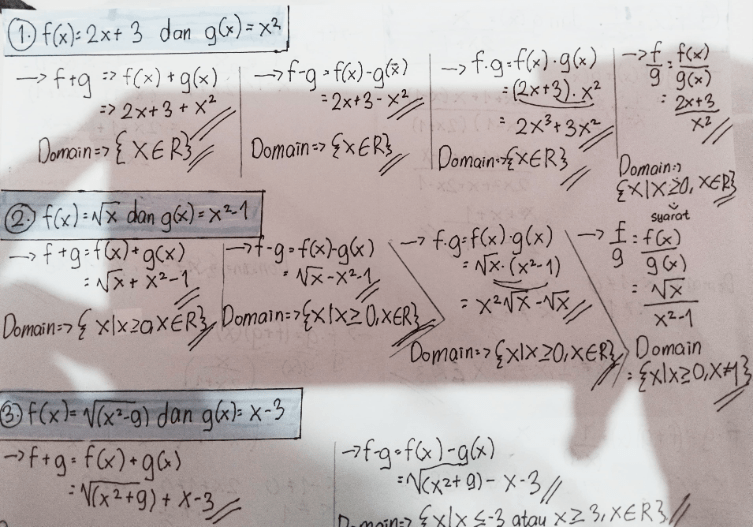 1. f(x)=2x+3 dan g(x)=x²
→ f+g => f(x)+g(x)
=> 2x+3+x²
Domain=> {x∈R}
→ f-g = f(x)-g(x)
= 2x+3-x²
Domain=> {x∈R}
→ f.g = f(x).g(x)
= (2x+3).x²
= 2x³+3x²
Domain=> {x∈R}
→ f/g = f(x)/g(x)
= 2x+3/x²
Domain=>
{x|x≥0, x∈R}
syarat
2. f(x)=√x dan g(x)=x²-1
→ f+g = f(x)+g(x)
= √x + x²-1
Domain=> {x|x≥0, x∈R}
→ f-g = f(x)-g(x)
= √x-x²-1
Domain=> {x|x≥0, x∈R}
→ f.g = f(x).g(x)
= √x.(x²-1)
= x²√x-√x
Domain=> {x|x≥0, x∈R}
→ f/g = f(x)/g(x)
= √x/x²-1
Domain
= {x|x≥0, x≠1}
3. f(x)=√(x²-9) dan g(x)=x-3
→ f+g = f(x)+g(x)
= √(x²+9) + x-3
→ f-g = f(x)-g(x)
= √(x²+9) - x-3
Domain=> {x|x≤-3 atau x≥3, x∈R}